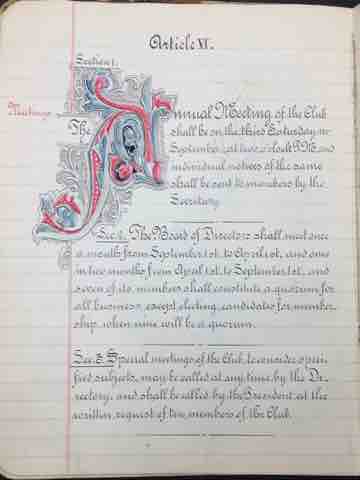 Article VI.
Section 1.
Meetings
The Annual Meeting of the Club
shall be on the third Saturday in
September, at two o'clock P.M. and
individual notices of the same
shall be sent to members by the
Secretary.
Sec. 2. The Board of Directors shall meet once
a month from September 1st. to April 1st, and once
in two months from April 1st, to September 1st, and
seven of its members shall constitute a quorum for
all business, except electing candidates for member-
ship, when nine will be a quorum.
Sec. 3. Special meetings of the Club, to consider speci-
fied subjects, may be called at any time by the Di-
rectory, and shall be called by the President at the
written request of ten members of the Club.